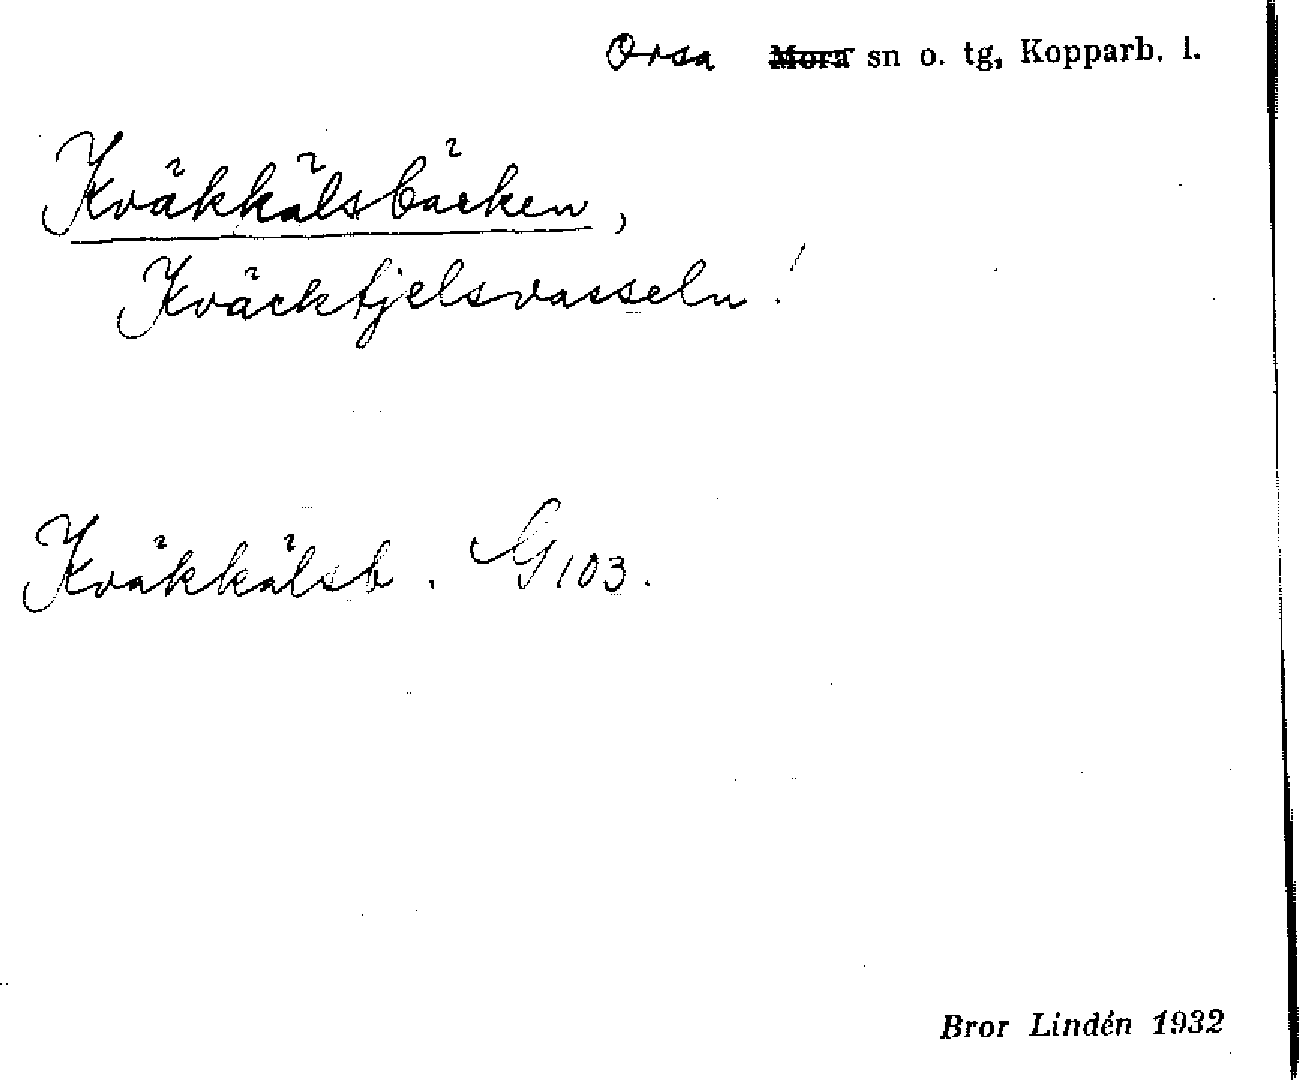 Orsa Mora sn o. tg, Kopparb. l.
Kväkkälsbäcken,
Kväcktjelsvasseln!
Kväkkälsb. G103.
Bror Lindén 1932